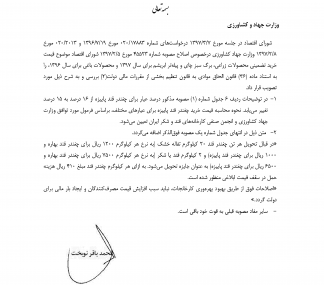 بسمه تعالی
وزارت جهاد و کشاورزی
شورای اقتصاد در جلسه مورخ ۱۳۹۷/۳/۷ درخواست‌های شماره ۰۲۰/۱۷۸۸۳ مورخ ۱۳۹۶/۷/۱۹ و ۰۲۰/۲۰۱۳ مورخ
۱۳۹۷/۲/۸ وزارت جهاد کشاورزی درخصوص اصلاح مصوبه شماره ۴۵۵۷۳ مورخ ۱۳۹۷/۲/۵ شورای اقتصاد موضوع قیمت
خرید تضمینی محصولات زراعی، برگ سبز چای و پیله‌تر ابریشم برای سال ۱۳۹۷ و محصولات باغی برای سال ۱۳۹۶، را
به استناد ماده (۲۶) قانون الحاق موادی به قانون تنظیم بخشی از مقررات مالی دولت(۲) بررسی و به شرح ذیل مورد
تصویب قرار داد.
۱- در توضیحات ردیف ۶ جدول شماره (۱) مصوبه مذکور درصد عیار برای چغندر قند پاییزه از ۱۶ درصد به ۱۵ درصد
تغییر می‌یابد. نحوه محاسبه قیمت خرید چغندر قند پاییزه برای عیارهای مختلف براساس فرمول مورد توافق وزارت
جهاد کشاورزی و انجمن صنفی کارخانه‌های قند و شکر ایران تعیین می‌شود.
۲- متن ذیل در انتهای جدول شماره یک مصوبه فوق‌الذکر اضافه می‌گردد.
«در قبال تحویل هر تن چغندر قند ۲۰ کیلوگرم تفاله خشک (به نرخ هر کیلوگرم ۱۲۰۰ ریال برای چغندر قند بهاره و
۱۰۰۰ ریال برای چغندر قند پاییزه) و ۲ کیلوگرم قند یا شکر (به نرخ هر کیلوگرم ریال برای چغندر قند بهاره و
۶۵۰۰ ریال برای چغندر قند پاییزه) به عنوان جایزه تحویل می‌شود. به ازای هر کیلوگرم چغندر قند مبلغ ۴۱۰ ریال هزینه
حمل در سقف قیمت ابلاغی منظور شده است.
«اصلاحات فوق از طریق بهبود بهره‌وری کارخانجات، نباید سبب افزایش قیمت مصرف‌کنندگان و ایجاد بار مالی برای
دولت گردد.»
- سایر مفاد مصوبه قبلی به قوت خود باقی است.
محمد باقر نوبخت